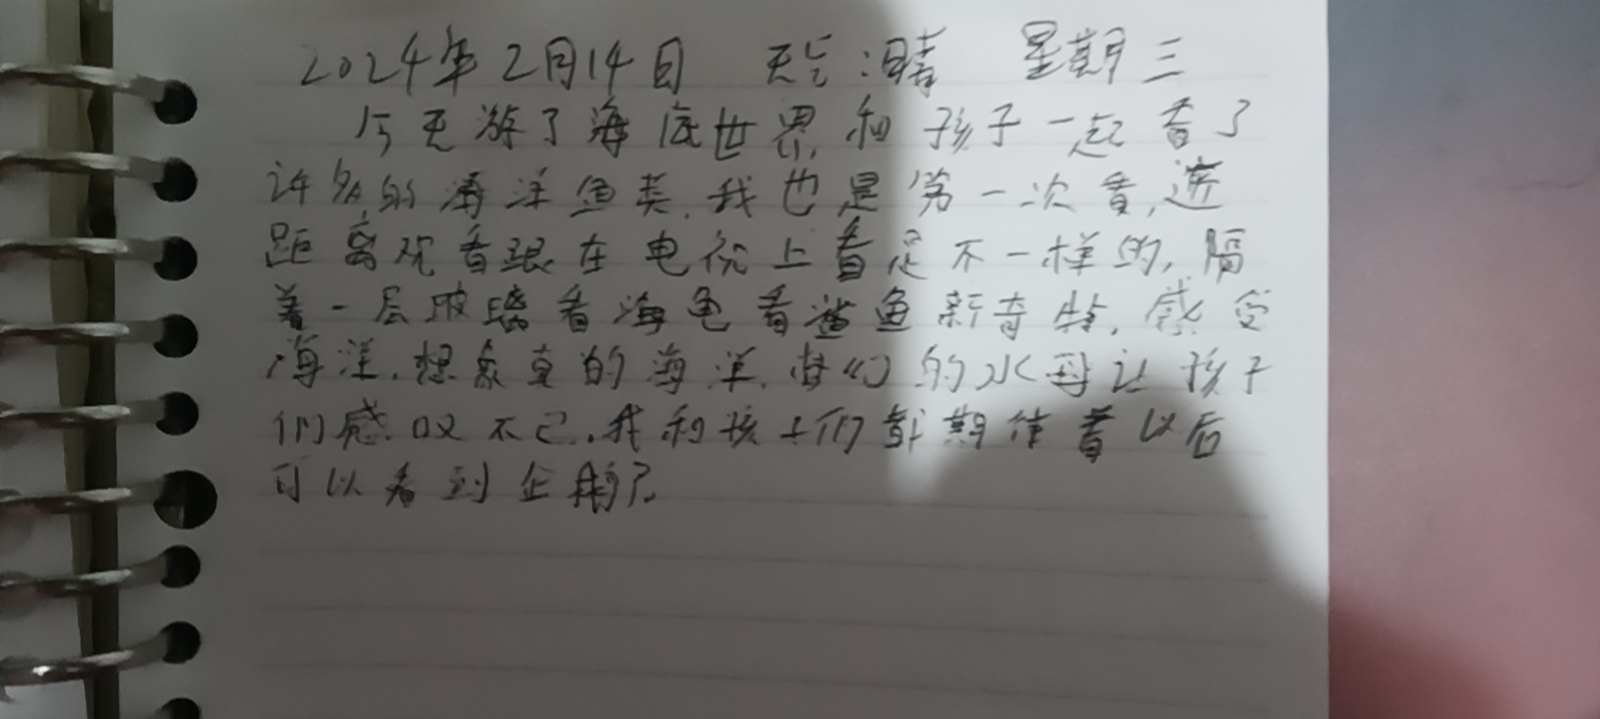 2024年2月14日 天气:晴 星期三
今天游了海底世界,和孩子一起看了
许多的海洋鱼类,我也是第一次看,近
距离观看跟在电视上看是不一样的,隔
着一层玻璃看海龟看鲨鱼新奇,感受
海洋,想象真的海洋,的水母让孩子
们感叹不已,我和孩子们都期待着以后
可以看到企鹅了.